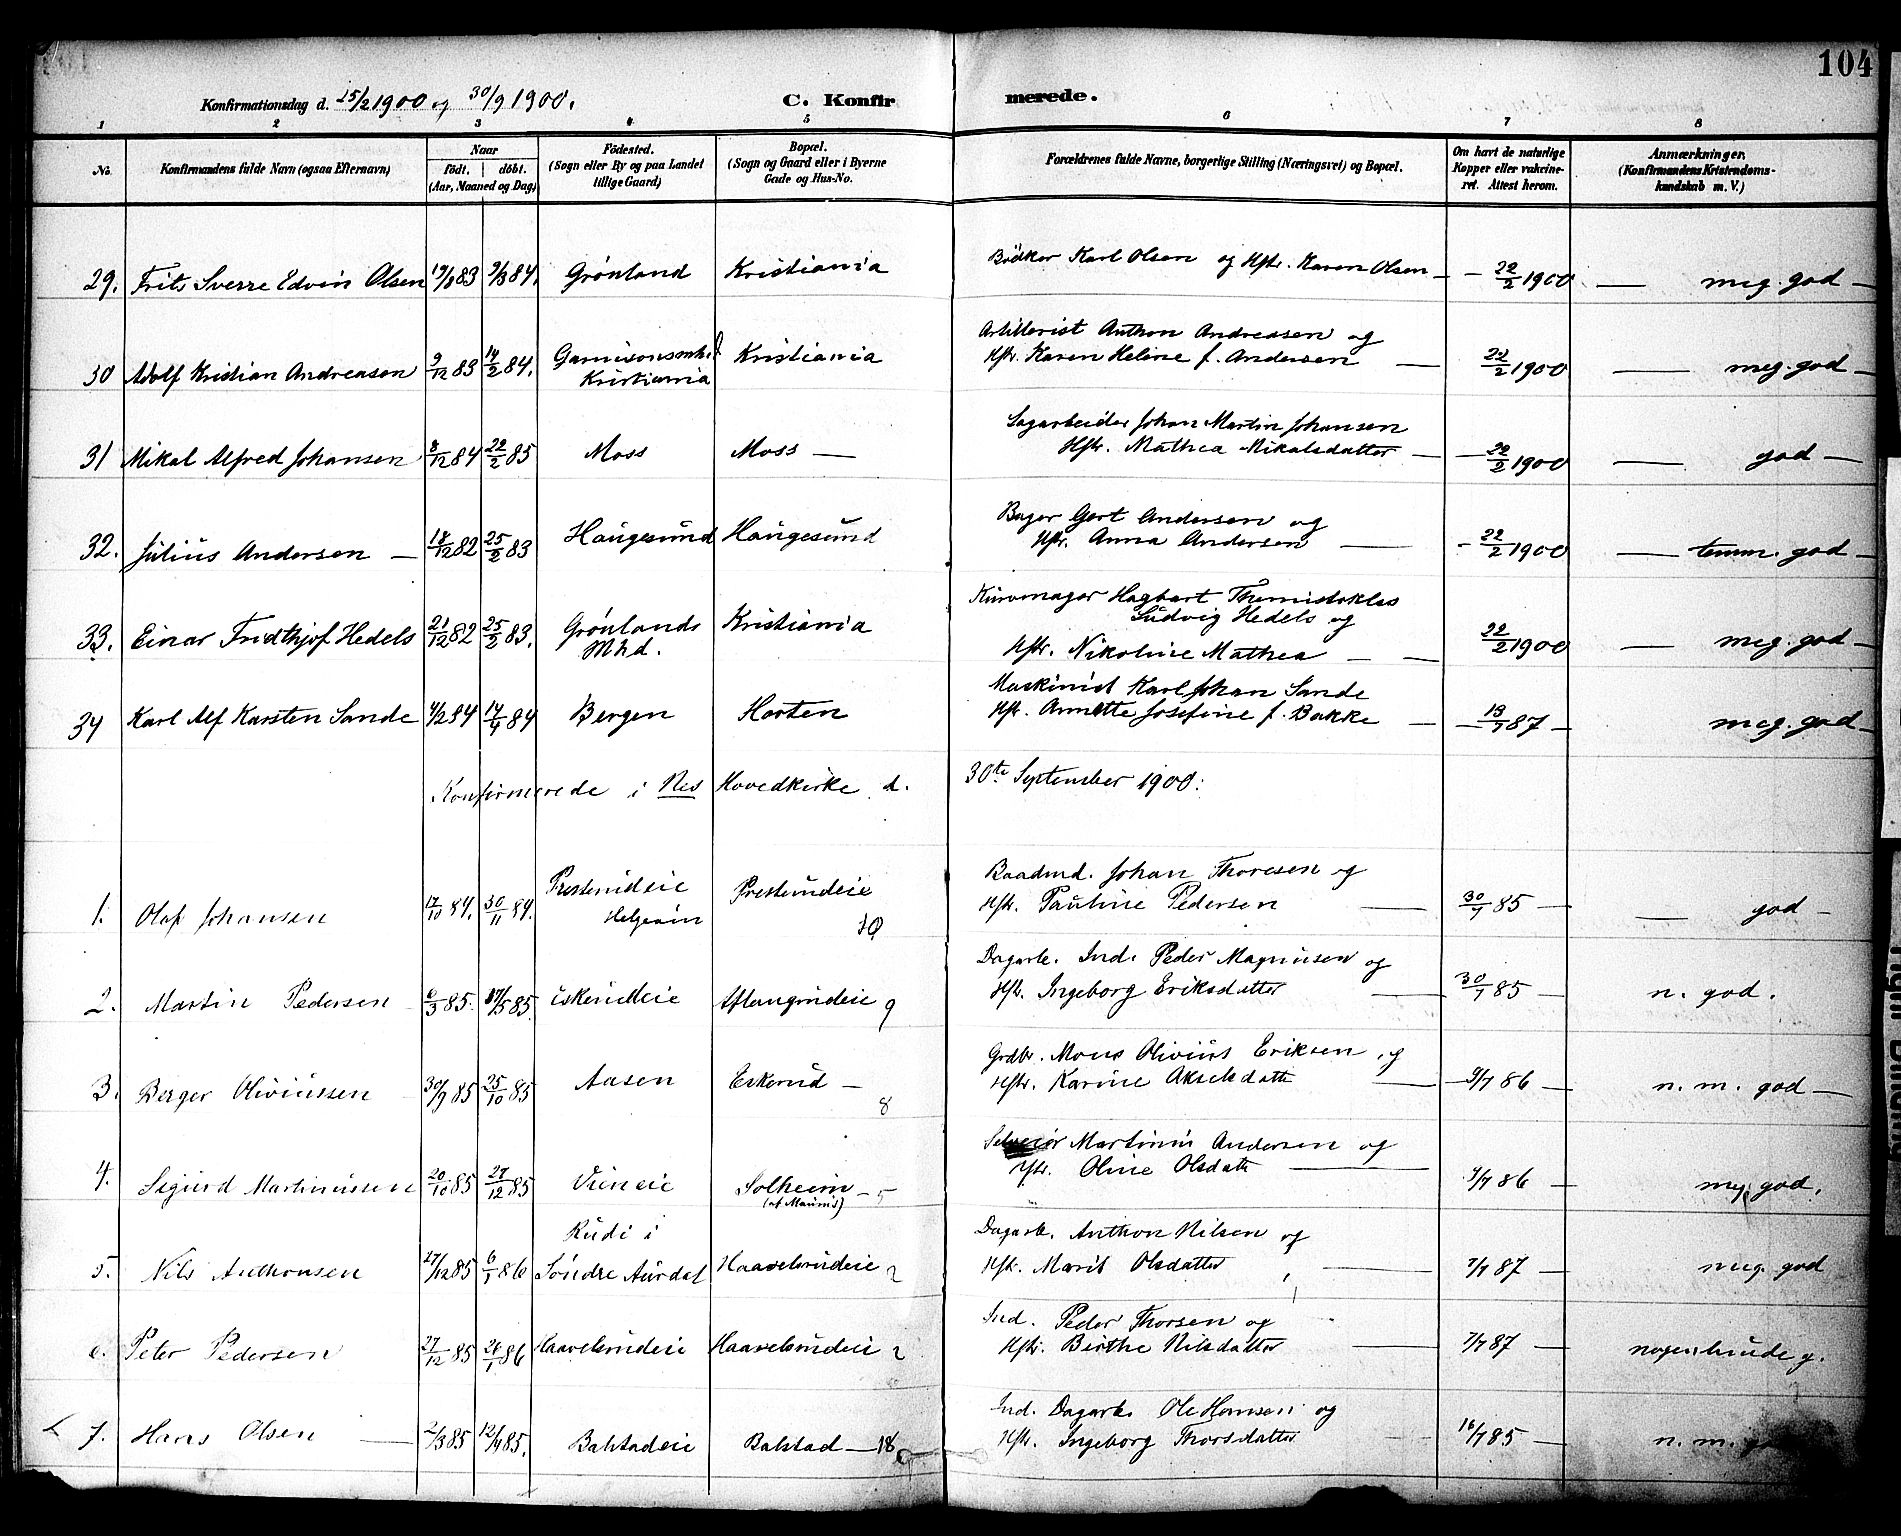 104
Konfirmationsdag d. 25/2 1900 og 30/9 1900. C. Konfirmerede.
1 2 3 4 5 6 7 8
No. Konfirmandens fulde Navn (ogsaa Efternavn) Naar født. døbt. (Aar, Maaned og Dag) Fødested. (Sogn eller By og paa Landet tillige Gaard) Bopæl. (Sogn og Gaard eller i Byerne Gade og Hus-No. Forældrenes fulde Navne, borgerlige Stilling (Næringsvei) og Bopæl. Om havt de naturlige Kopper eller vakcineret. Attest herom. Anmærkninger. (Konfirmandens Kristendomskundskab m. V.)
29. Frits Sverre Edvin Olsen 83 9/3 84. Grønland Kristiania Bødker Karl Olsen og Hstr. Karen Olsen – 22/2 1900 — meg. god –
30 Adolf Kristian Andreasen 9/12 83 14/2 84. Kristiania Kristiania Artillerist Anthon Andreasen og
Hstr. Karen Heline f. Andersen — 22/2 1900 — meg. god –
31 Mikal Alfred Johansen 8/12 84 22/2 85 Moss Moss — Sagarbeider Johan Martin Johansen
Hstr. Mathea Mikalsdatter – 22/2 1900 — god –
32. Julius Andersen – 18/12 82 25/2 83 Haugesund Haugesund Bager Gert Andersen og
Hstr. Anna Andersen — 22/2 1900 — temm. god –
33. Einar Fridthjof Hedels 21/12 82 25/2 83. Grønlands Mhd. Kristiania Kurvmager Hagbart Themistokles
Ludvig Hedels og
Hstr. Nikoline Mathea — 22/2 1900 — meg. god –
34 Karl Alf Karsten Sande 4/2 84 14/4 84 Bergen Horten Maskinist Karl Johan Sande
Hstr. Annette Josefine f. Bakke – 13/7 87 – meg. god –
Konfirmerede i Nes Hovedkirke d. 30te September 1900:
1. Olaf Johansen 17/10 84. 30/11 84. Presterudeie Helgøen Presterudeie 10 Baadmd. Johan Thoresen og
Hstr. Pauline Pedersen — 30/7 85 — god –
2. Martin Pedersen 6/3 85. 17/5 85. Eskerudeie Aflangrudeie 9 Dagarb. Ind. Peder Magnusen og
Hstr. Ingeborg Eriksdatter — 30/7 85 — n. god.
3. Berger Oliviussen 30/9 85 25/10 85 Aasen Eskerud – 8 Grdbr. Mons Olivius Eriksen og
Hstr. Karine Akselsdatt — 9/7 86 — n. m. god —
4. Sigurd Martinussen 20/10 85 27/12 85 Vieneie Solheim – 5
Martinus Andersen og
Hstr. Oline Olsdatt — 9/7 86 — meg god.
5. Nils Anthonsen 27/12 85 6/1 86 Rudi i Søndre Aurdal Haavelsrudeie 2 Dagarb. Anthon Nilsen og
Hstr. Marit Olsdatter — 7/7 87 — meg. god
6. Peter Pedersen 27/12 85 26/1 86 Haavelsrudeie Haavelsrudeie 2 Ind. Peder Thorsen og
Hstr. Birthe Nilsdatter — 7/7 87 — g.
7. Hans Olsen — 2/3 85 12/4 85. Balstadeie Balstad — 18 Ind. Dagarb. Ole Hansen og
Hstr. Ingeborg Thorsdatter – 16/7 85 — n. m.